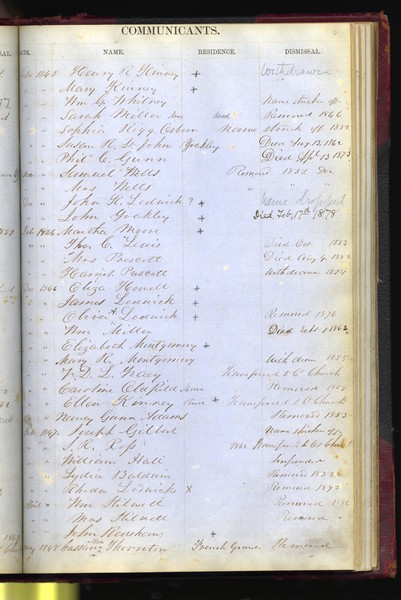 COMMUNICANTS.
RAL. DATE. NAME. RESIDENCE. DISMISSAL.
1845 Henry R. Kinney + Withdrawn
" " Mary Kinney +
" " Wm G. Whitney Name stricken off
" " Sarah Miller dead Removed 1866
" " Sophia Rigg Osborn Name struck off 1852
" " Susan H. St. John Yoakley Died Aug 12, 1862
" " Phil C. Gunn Died Apl 13 1873
Samuel Wells Removed 1852
" " Mrs Wells " " "
John H. Lodwick ? + Name dropped
" " John Yoakley + Died Feb, 17th 1878
Feb 1846 Martha Moore +
" " Thos. C. Lewis Died Oct 1853
" " Mrs Prescott Died Aug 9, 1852
" " Harriet Prescott Withdrawn 1854
1846 Eliza Howell +
" " James Lodwick +
" " Olivia Lodwick + Removed 1874
" " Wm Miller Died Sept 1 1862
" " Elizabeth Montgomery +
" " Mary R. Montgomery Withdrawn 1855
" " Church
" " Caroline Removed
" " Ellen Kinney + Church
Nancy Gunn Adams Removed 1853
1847 Joseph Gilbert Name stricken off
" " S. R. Ross 1862 Church
" William Hall Suspended
" Lydia Baldwin Removed 1852
" " Rhoda Lodwick x Removed 1872
" Wm Stilwell Removed 1872
" " Mrs Stilwell Removed "
" " John Renshaw +
1848 Thornton French Grant Removed